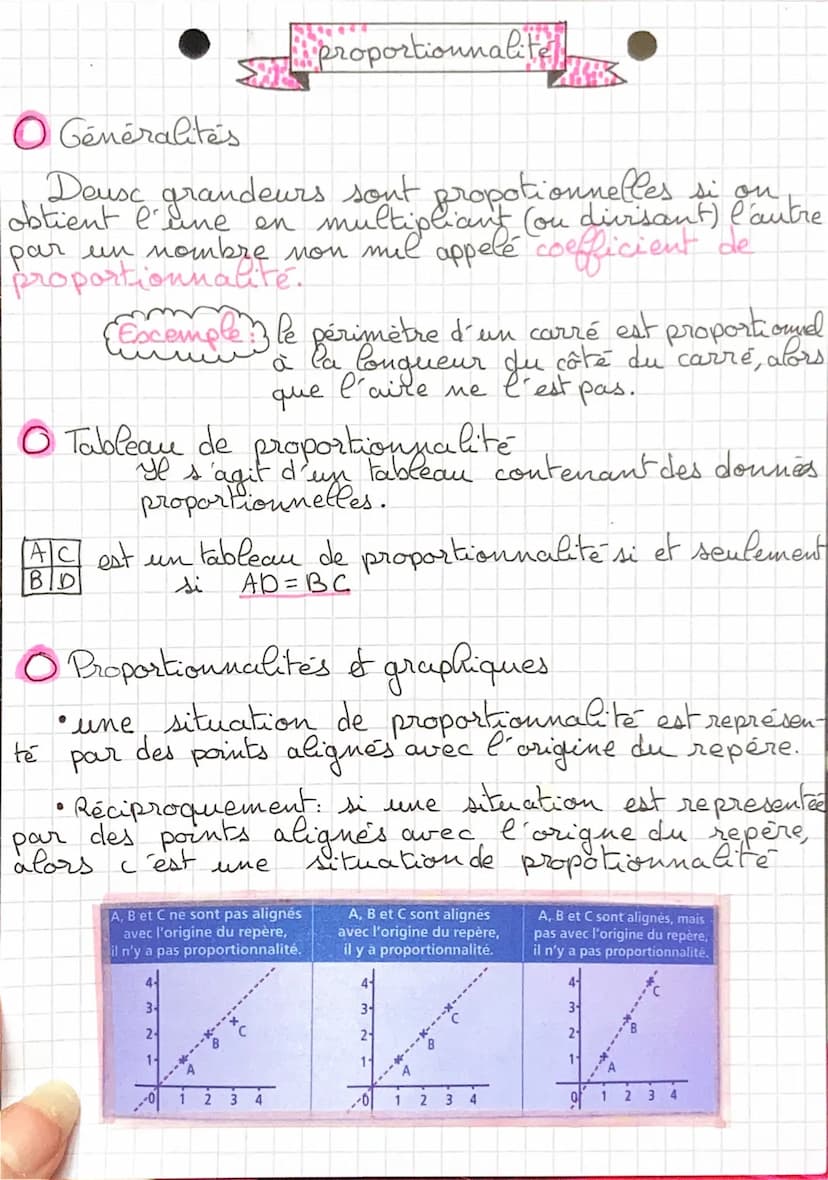 proportionnalité
Généralités
Deux grandeurs sont propotionnelles si on
obtient l'une en multipliant (ou divisant) l'autre
par un nombre non nul appelé coefficient de
proportionnalité.
Exemple : le périmètre d'un carré est proportionnel
à la longueur du côté du carré, alors
que l'aire ne l'est pas.
Tableau de proportionnalité
Il s'agit d'un tableau contenant des donnés
proportionnelles.
A C est un tableau de proportionnalité si et seulement
B D si AD = BC
Proportionnalités et graphiques
• une situation de proportionnalité est représen-
té par des points alignés avec l'origine du repére.
• Réciproquement : si une situation est representée
par des points alignés avec l'origne du repère,
alors c'est une situation de propotionnalité
A, B et C ne sont pas alignés
avec l'origine du repère,
il n'y a pas proportionnalité.
A, B et C sont alignés
avec l'origine du repère,
il y a proportionnalité.
A, B et C sont alignés, mais
pas avec l'origine du repère,
il n'y a pas proportionnalité.
4
3
2
1
A
B
C
0 1 2 3 4
4
3
2
1
A
B
C
0 1 2 3 4
4
3
2
1
A
B
C
0 1 2 3 4